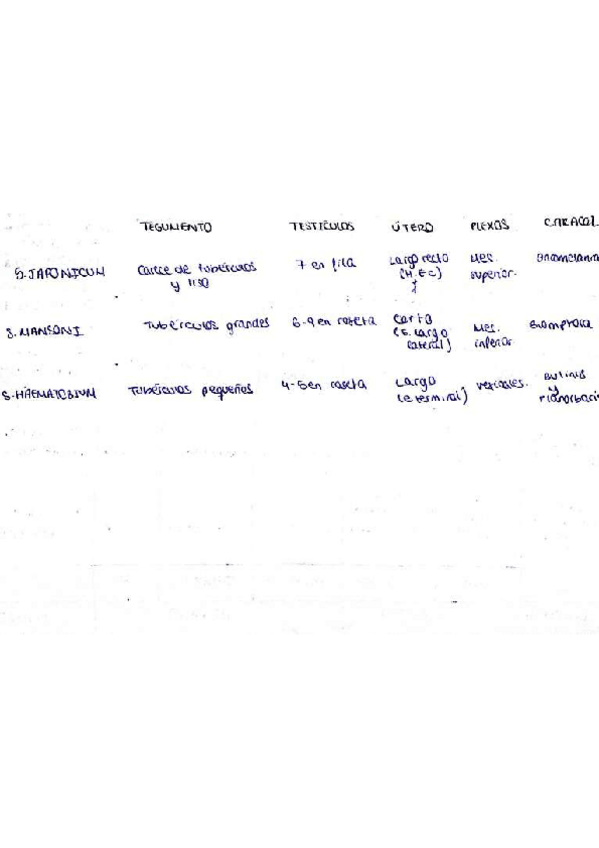 TEGUMENTO TESTÍCULOS ÚTERO PLEXOS CARACOL
S. JAPONICUM Carece de tubérculos 7 en fila Largo recto Mes.
y liso superior.
S. MANSONI Tubérculos grandes 6-9 en roseta Corto Mes.
(E. largo inferior
lateral)
S. HAEMATOBIUM Tubérculos pequeños 4-5 en roseta Largo vesicales. Bulinus
(E terminal) y